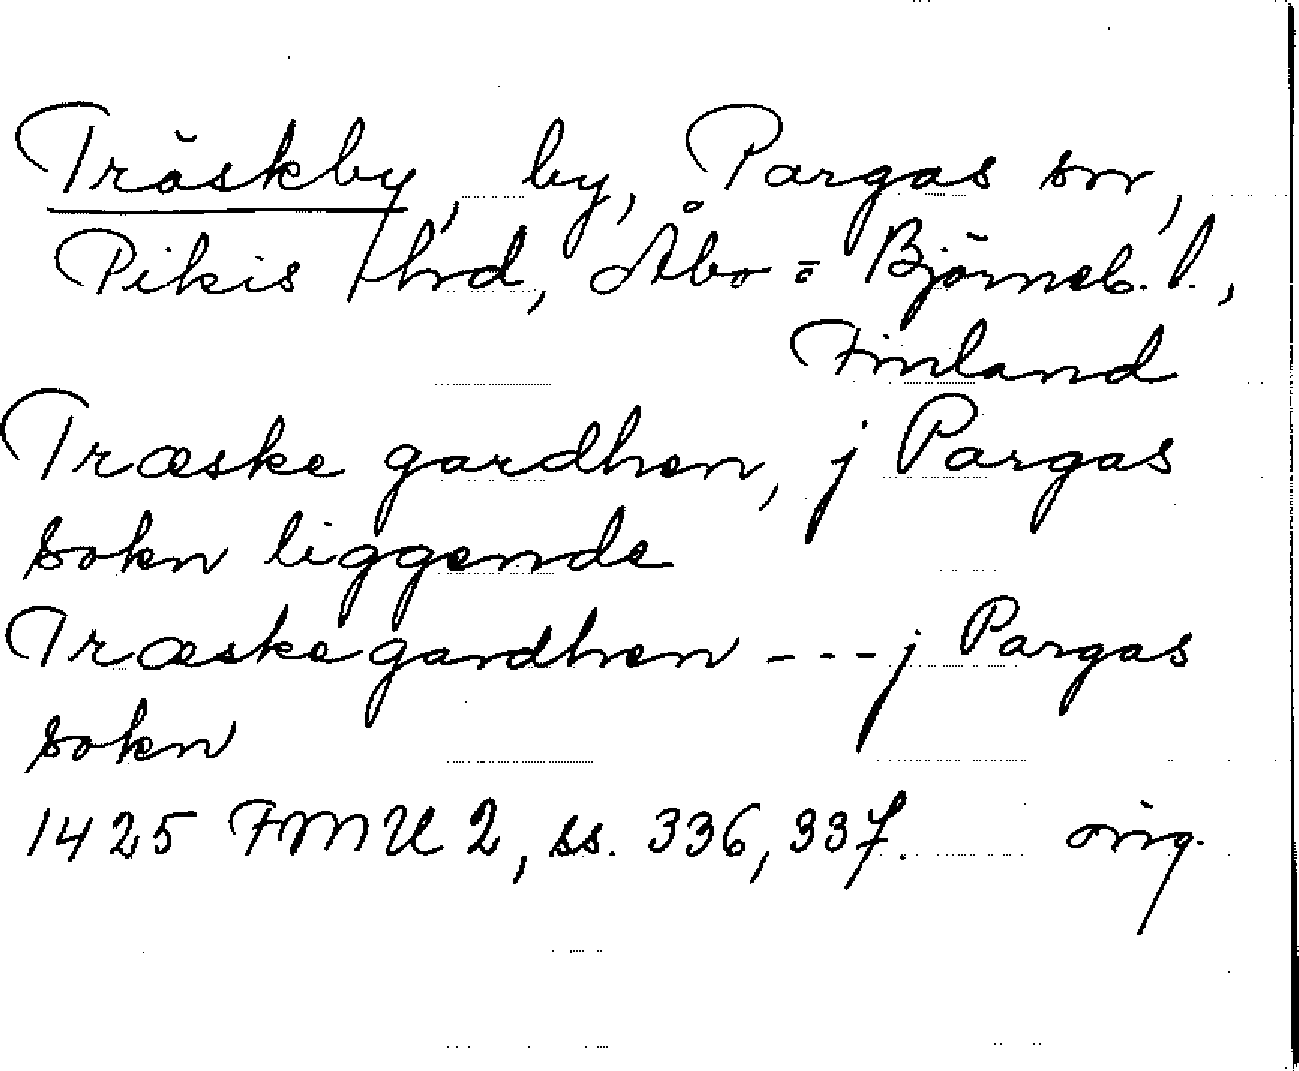 Träskby, by, Pargas sn,
Pikis hrd, Åbo = Björneb. l.,
Finland
Træske gardhen, j Pargas
sokn liggende
Træskegardhen --- j Pargas
sokn
1425 FMU 2, ss. 336, 337. orig.